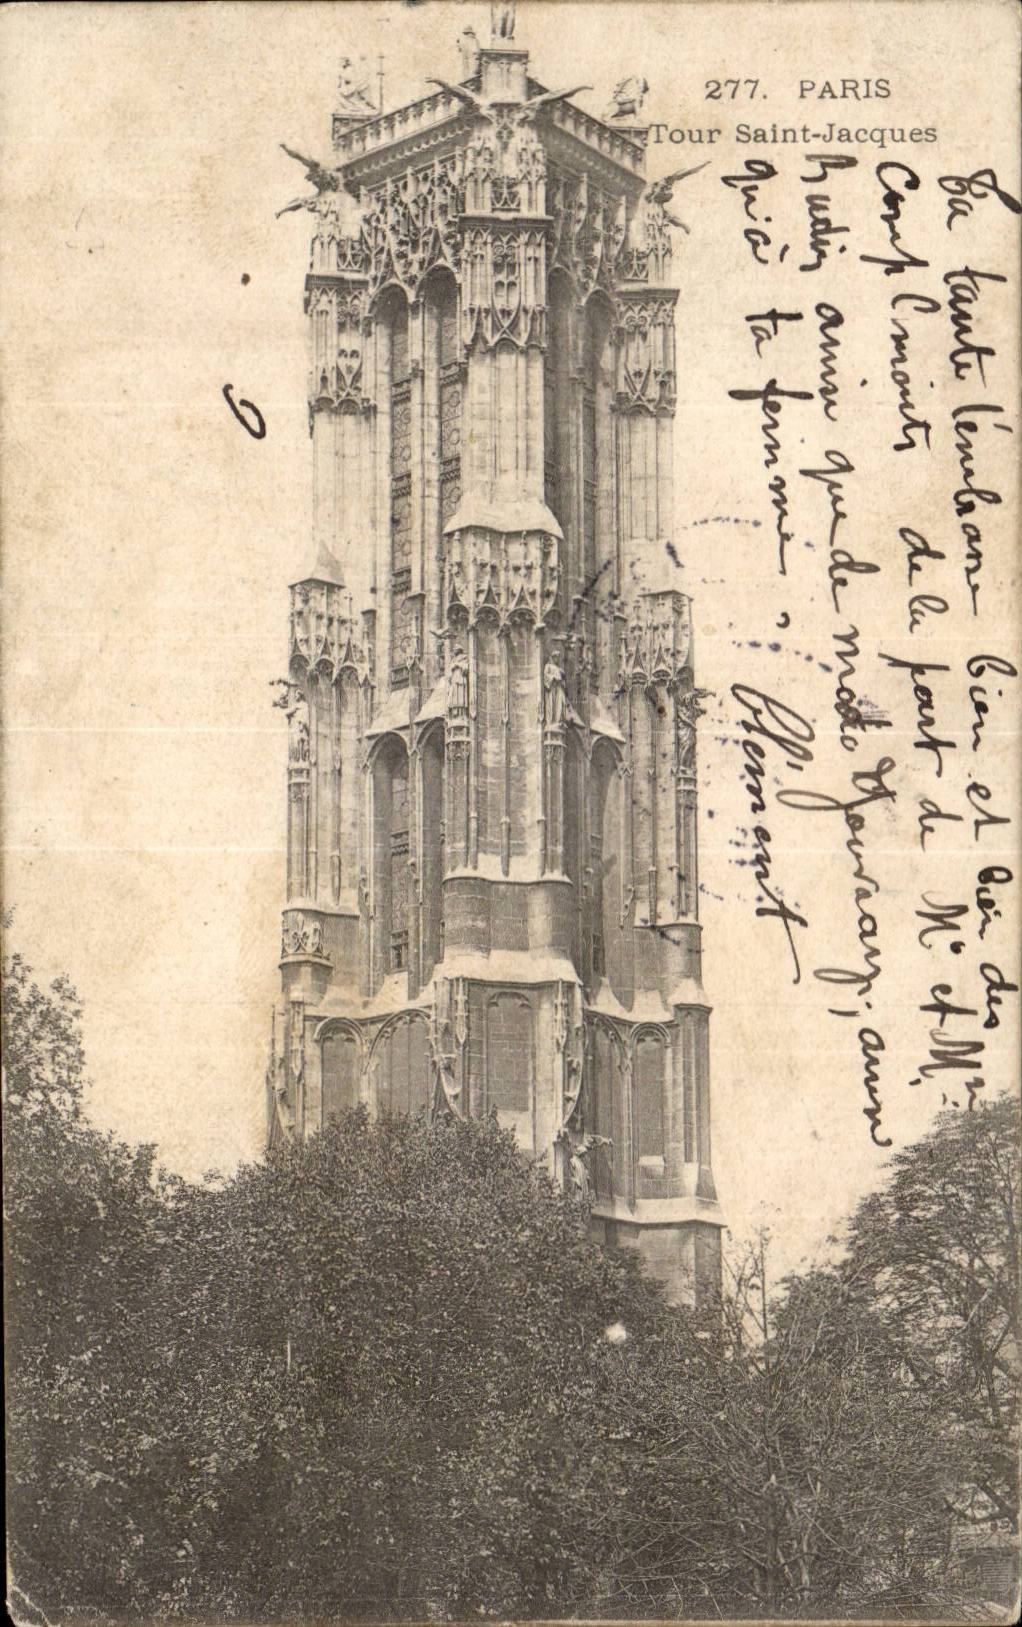 277. PARIS
Tour Saint-Jacques
Ta tante t'embrasse bien et bien des
Compliments de la part de Mr et Mme
ainsi que de made aussi
qu'à ta femme,
Clement